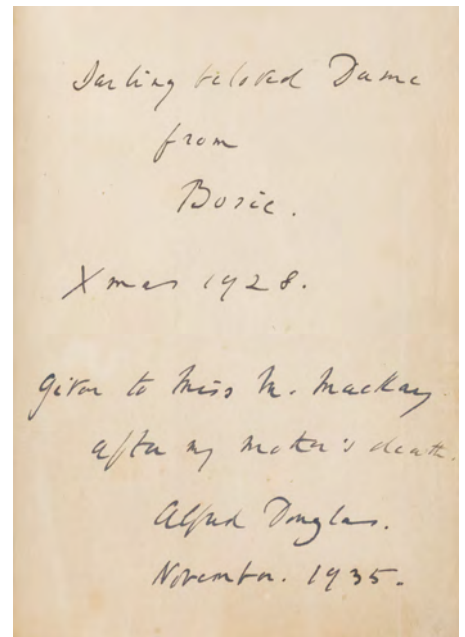 Darling beloved Dame
from
Bosie.
Xmas 1928.
Given to Miss M. Mackay
after my mother's death.
Alfred Douglas.
November. 1935.